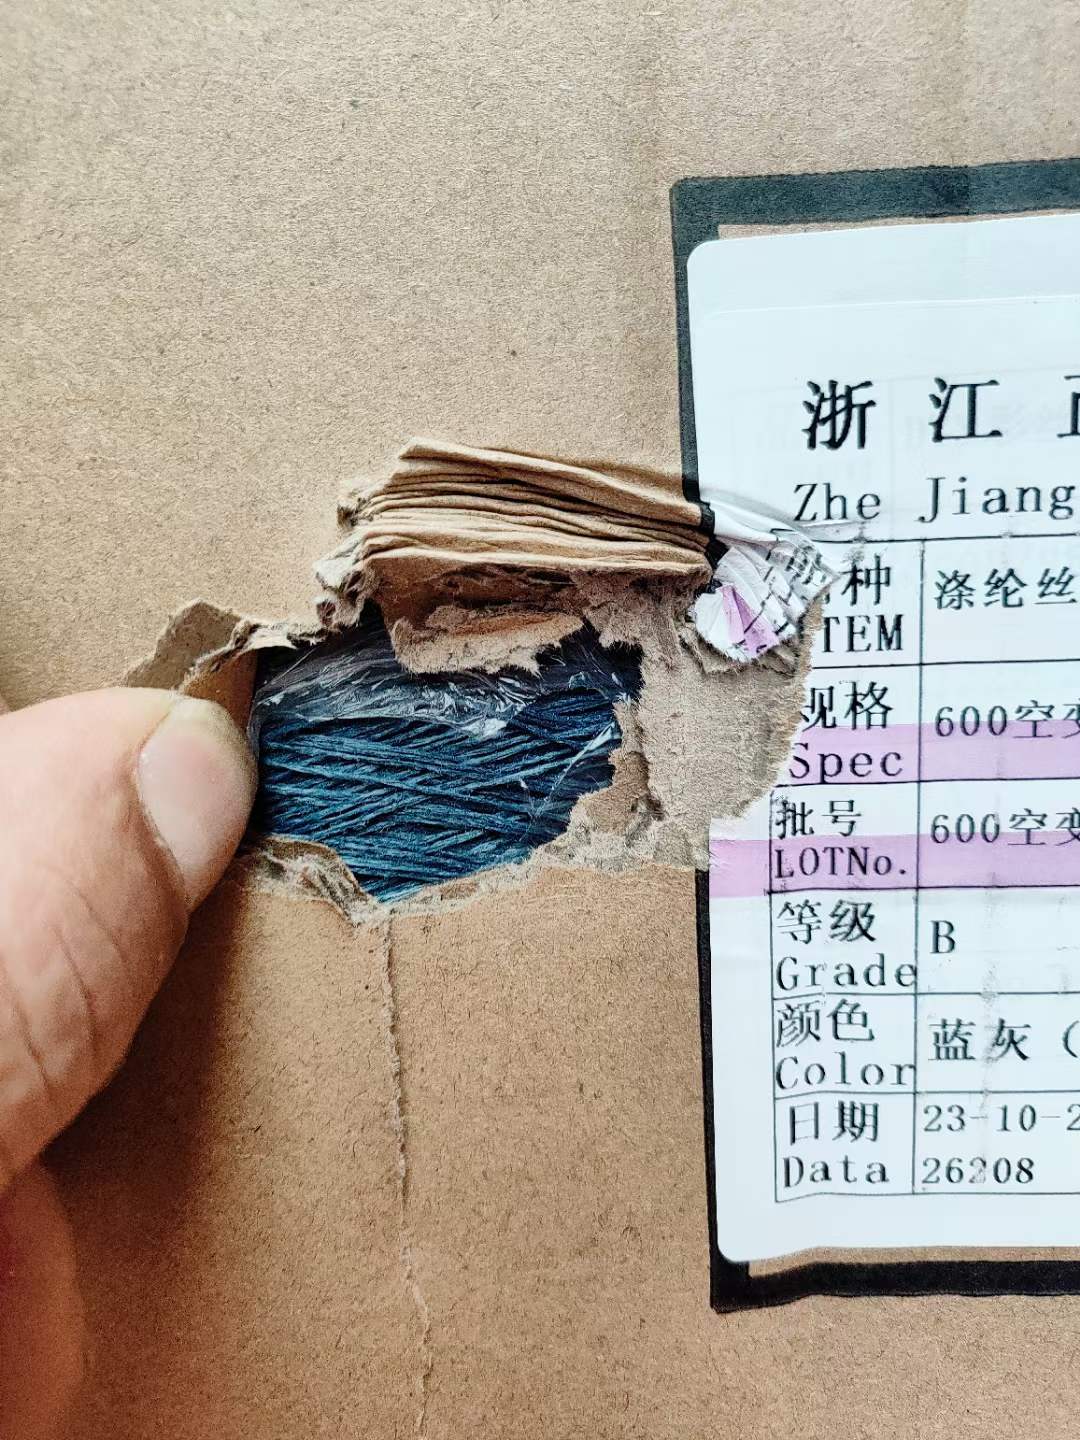 浙江
Zhe Jiang
种 涤纶丝
TEM
规格 600空变
Spec
批号 600空变
LOTNo.
等级 B
Grade
颜色 蓝灰（
Color
日期 23-10-2
Data 26208